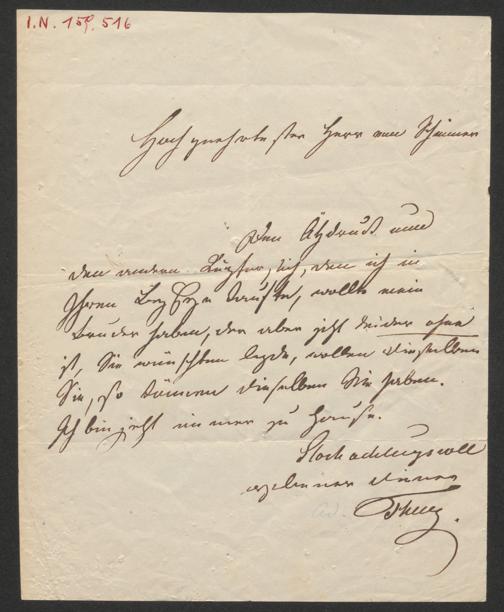 I.N. 159.516
Hochgeehrtester Herr von
Den Abdruck und
den andern, den ich in
Ihren kaufte, wollte mein
Bruder haben, der aber jetzt leider ohne
ist, Sie wünschten beyde, wollen dieselben
Sie, so können dieselben Sie haben.
Ich bin jetzt immer zu Hause.
Hochachtungsvoll
ergebener Diener